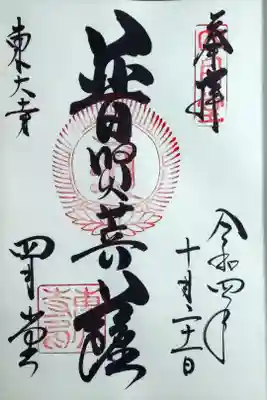 奉拝
令和四年
十月二十一日
普賢菩薩
東大寺
四月堂